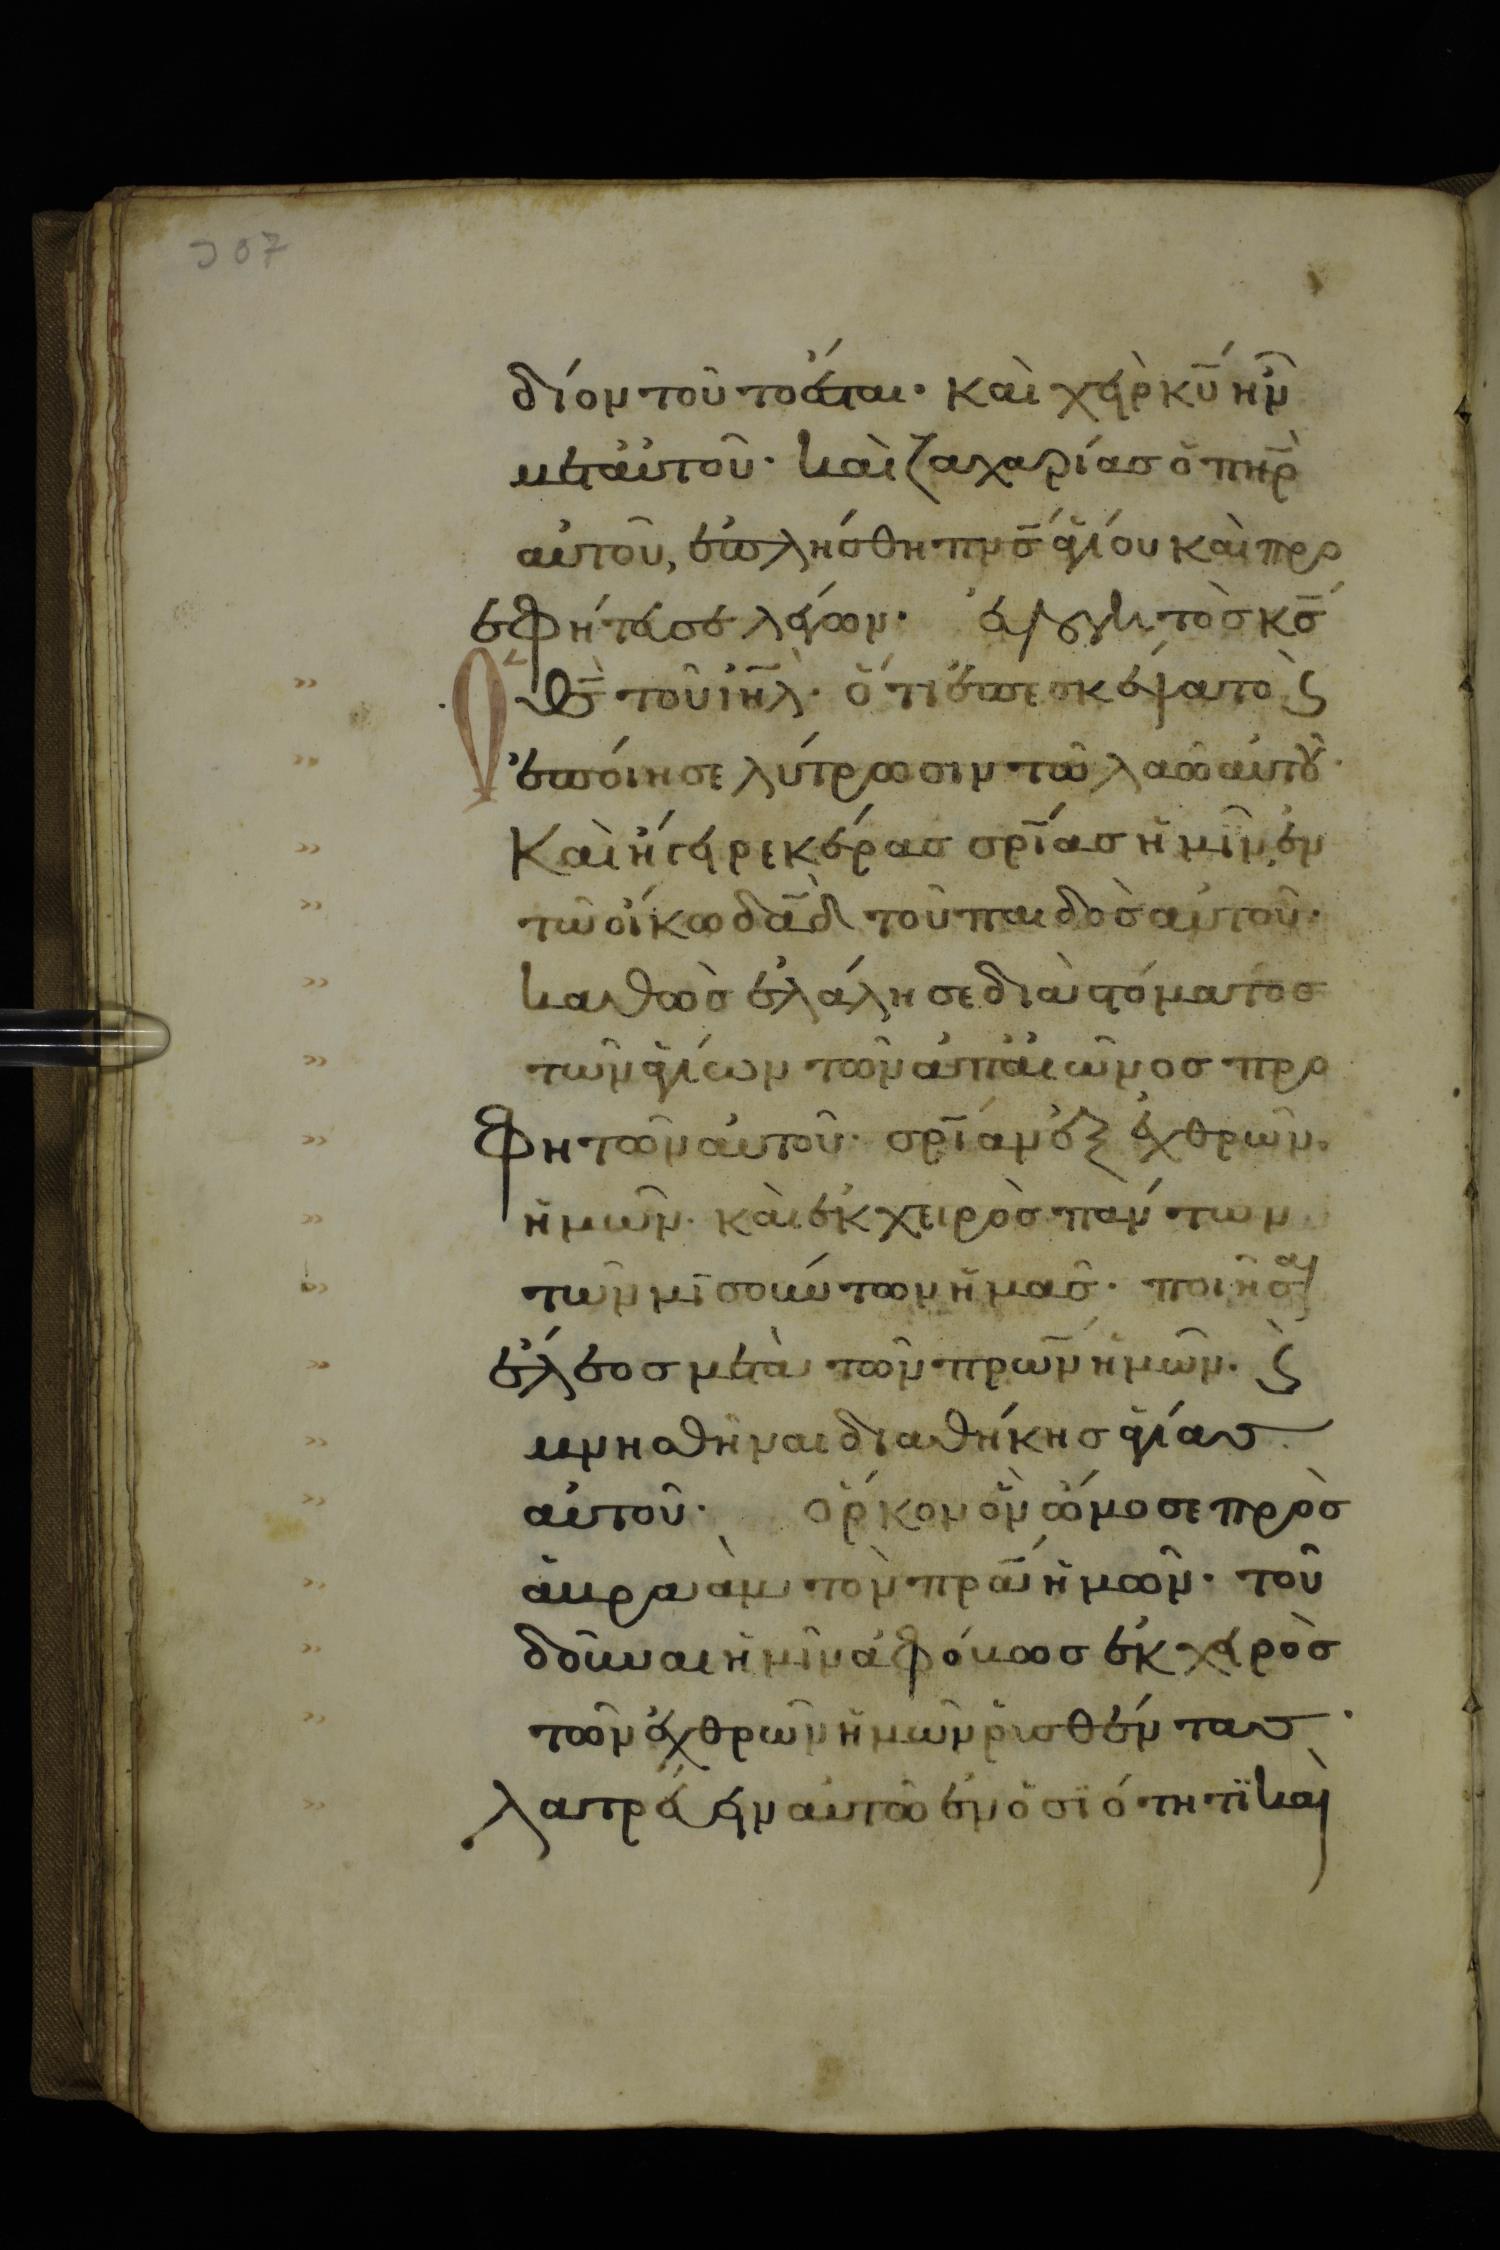 307
δίον τοῦτο ἔσται· καὶ χεὶρ κ̅υ̅ ἦν
μετ' αὐτοῦ· καὶ ζαχαρίας ὁ π̅η̅ρ̅
αὐτοῦ, ἐπλήσθη π̅ν̅ς̅ ἁγίου καὶ προ
εφήτευσε λέγων· εὐλογητὸς κ̅ς̅
ὁ θ̅ς̅ τοῦ ι̅η̅λ̅· ὅτι ἐπεσκέψατο ϗ
ἐποίησε λύτρωσιν τῶ λαῶ αὐτοῦ·
Καὶ ἤγειρε κέρας σ̅ρ̅ίας ἡμῖν, ἐν
τῶ οἴκω δ̅α̅δ̅ τοῦ παιδὸς αὐτοῦ·
καθὼς ἐλάλησε διὰ στόματος
τῶν ἁγίων τῶν ἀπ' αἰῶνος προ
φητῶν αὐτοῦ· σ̅ρ̅ίαν ἐξ ἐχθρῶν
ἡμῶν· καὶ ἐκ χειρὸς πάντων
τῶν μισούντων ἡμᾶς· ποιῆσαι
ἔλεος μετὰ τῶν π̅ρ̅ω̅ν̅ ἡμῶν· ϗ
μνησθῆναι διαθήκης ἁγίας
αὐτοῦ· ὅρκον ὃν ὤμοσε πρὸς
ἀβραὰμ τὸν π̅ρ̅α̅ ἡμῶν· τοῦ
δοῦναι ἡμῖν ἀφόβως ἐκ χειρὸς
τῶν ἐχθρῶν ἡμῶν ῥυσθέντας·
λατρεύειν αὐτῶ ἐν ὁσϊότητϊ καὶ